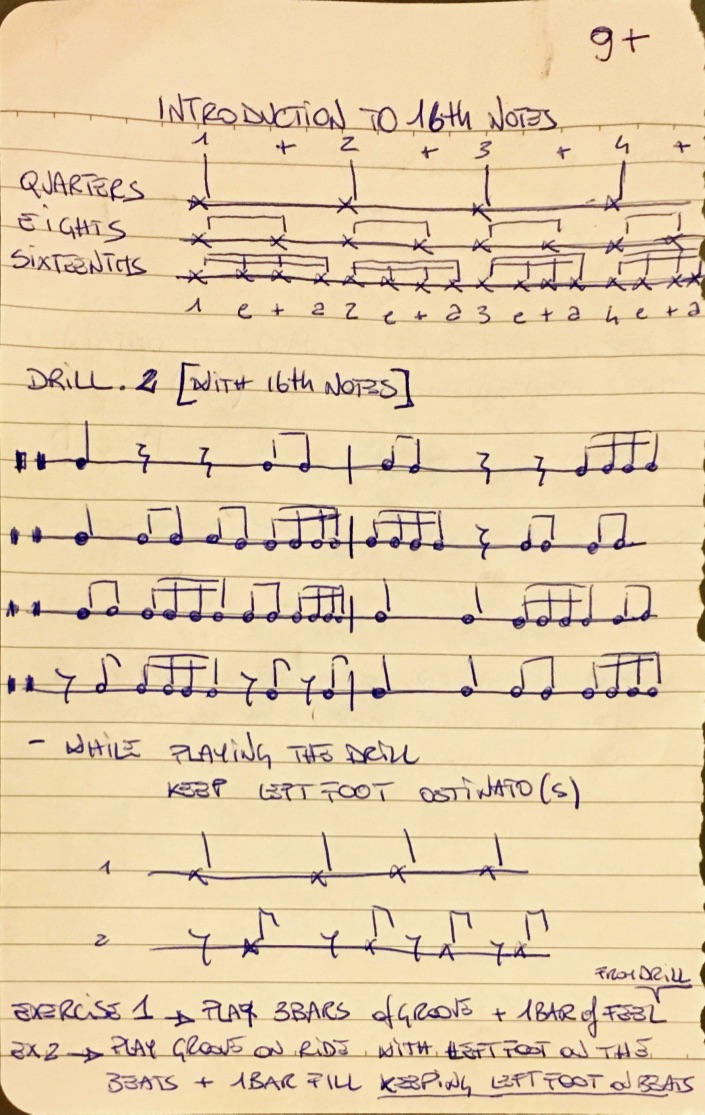 9+
INTRODUCTION TO 16th NOTES
1 + 2 + 3 + 4 +
QUARTERS
EIGHTS
SIXTEENTHS
1 e + a 2 e + a 3 e + a 4 e + a
DRILL. 2 [WITH 16th NOTES]
- WHILE PLAYING THE DRILL
KEEP LEFT FOOT OSTINATO(S)
1
2
FROM DRILL
EXERCISE 1 → PLAY 3BARS of GROOVE + 1BAR of FEEL
EX 2 → PLAY GROOVE ON RIDE WITH LEFT FOOT ON THE
BEATS + 1BAR FILL KEEPING LEFT FOOT ON BEATS